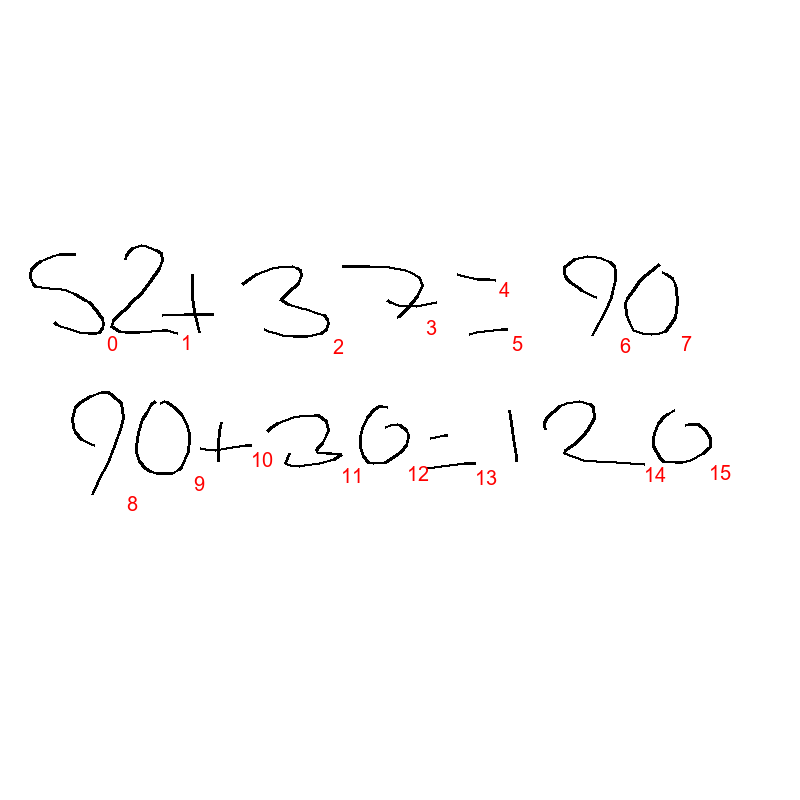 52+37=90
0 1 2 3 4 5 6 7
90+36=126
8 9 10 11 12 13 14 15